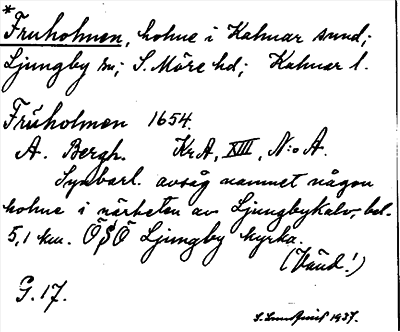 *
Fruholmen, holme i Kalmar sund;
Ljungby sn; S. Möre hd; Kalmar l.
Frůholmen 1654.
A. Bergh. KrA, XIII, N:o A.
Synbarl. avsåg namnet någon
holme i närheten av Ljungby Kalv, bel.
5,1 km. ÖSÖ Ljungby kyrka.
(Vänd!)
G. 17.
1937.